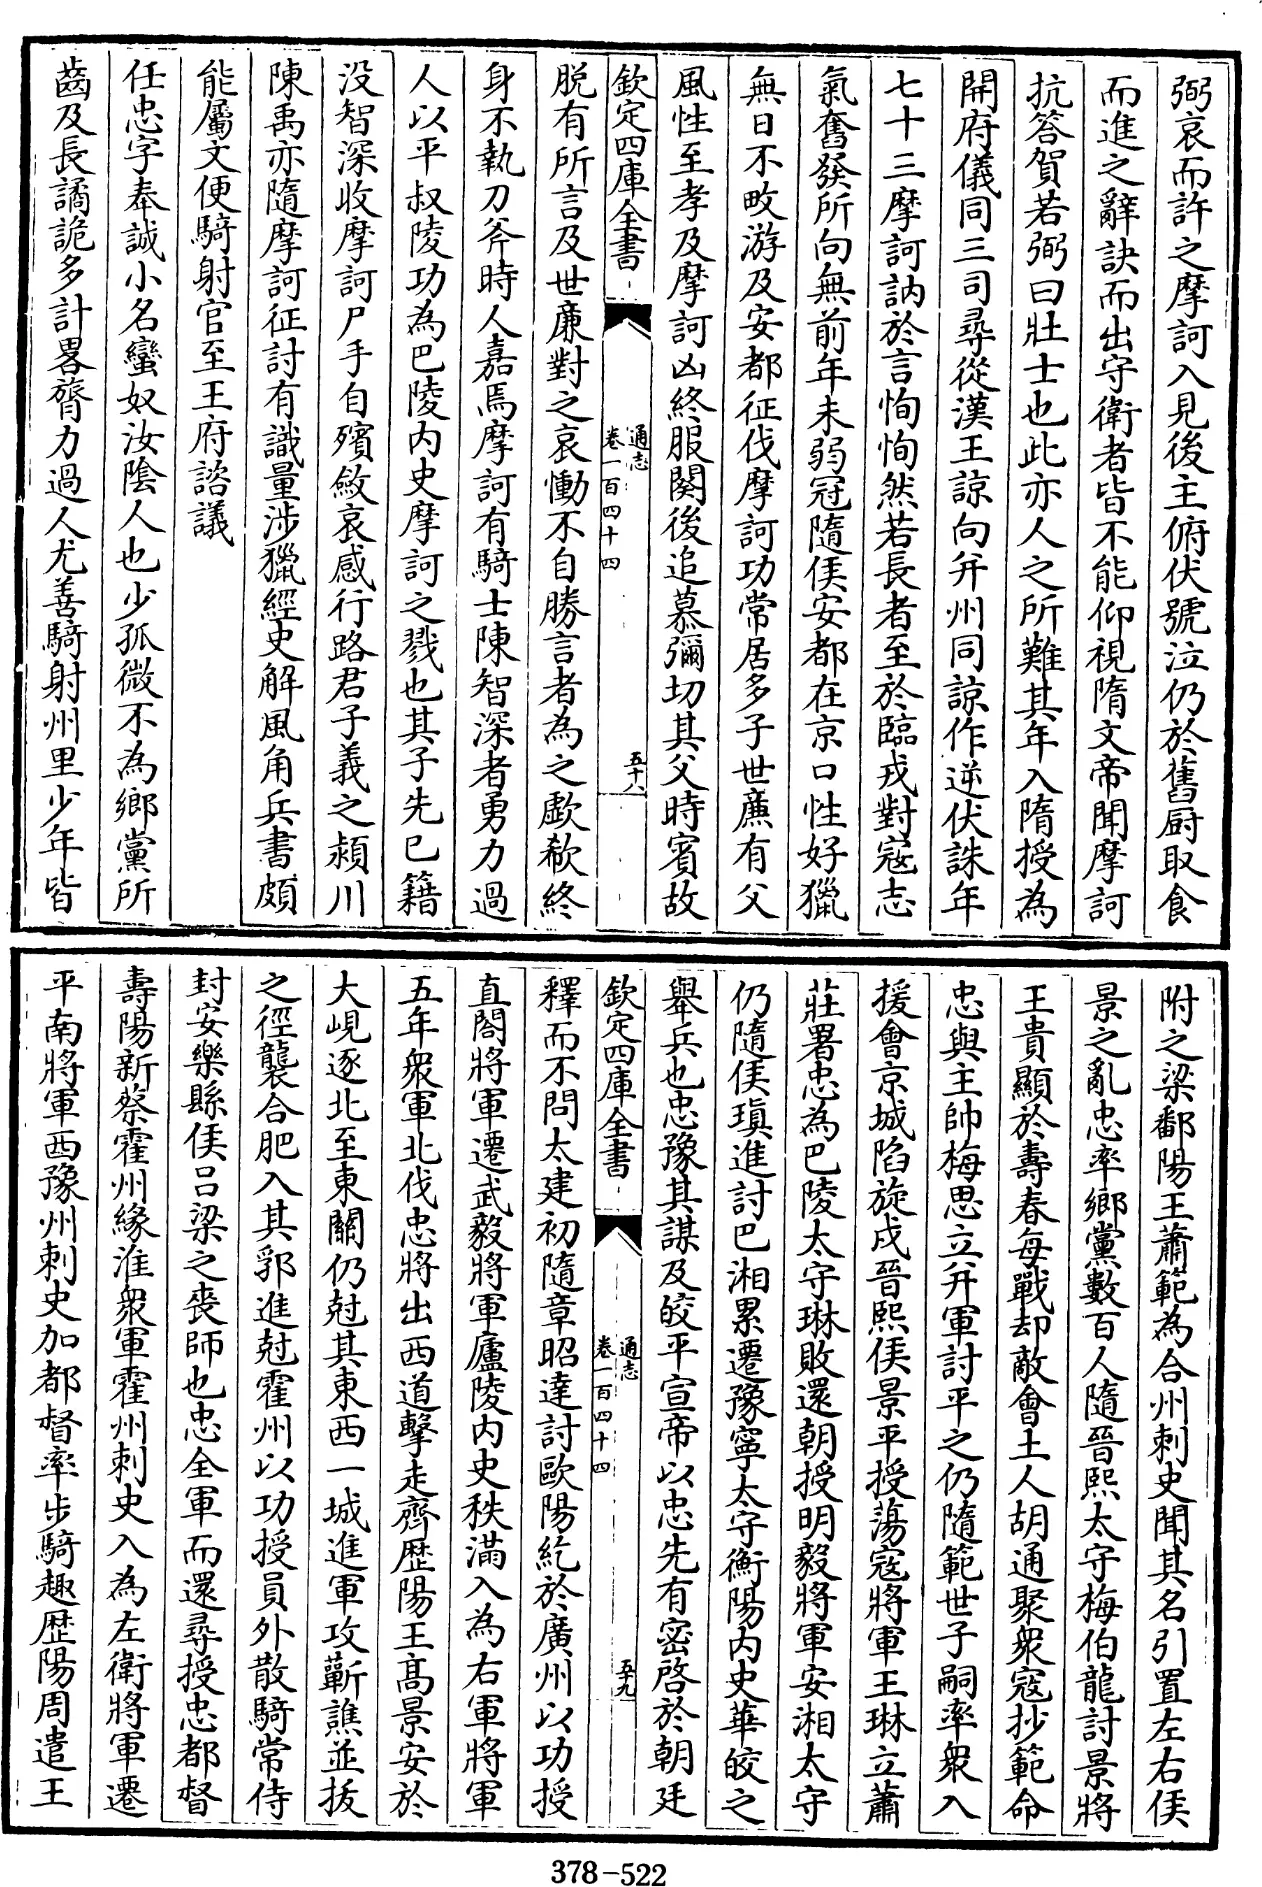 弼哀而許之摩訶入見後主俯伏號泣仍於舊厨取食
而進之辭訣而出守衛者皆不能仰視隋文帝聞摩訶
抗答賀若弼曰壯士也此亦人之所難其年入隋授為
開府儀同三司尋從漢王諒向并州同諒作逆伏誅年
七十三摩訶訥於言恂恂然若長者至於臨戎對寇志
氣奮發所向無前年未弱冠隨侯安都在京口性好獵
無日不畋游及安都征伐摩訶功常居多子世廉有父
風性至孝及摩訶凶終服闋後追慕彌切其父時賓故
欽定四庫全書
通志
卷一百四十四
五十八
脱有所言及世廉對之哀慟不自勝言者為之歔欷終
身不執刀斧時人嘉焉摩訶有騎士陳智深者勇力過
人以平叔陵功為巴陵内史摩訶之戮也其子先已籍
没智深收摩訶尸手自殯斂哀感行路君子義之潁川
陳禹亦隨摩訶征討有識量涉獵經史解風角兵書頗
能屬文便騎射官至王府諮議
任忠字奉誠小名蠻奴汝陰人也少孤微不為鄉黨所
齒及長譎詭多計畧膂力過人尤善騎射州里少年皆
附之梁鄱陽王蕭範為合州刺史聞其名引置左右侯
景之亂忠率鄉黨數百人隨晉熙太守梅伯龍討景將
王貴顯於壽春每戰却敵會土人胡通聚衆寇抄範命
忠與主帥梅思立并軍討平之仍隨範世子嗣率衆入
援會京城陷旋戍晉熙侯景平授蕩寇將軍王琳立蕭
莊署忠為巴陵太守琳敗還朝授明毅將軍安湘太守
仍隨侯瑱進討巴湘累遷豫寧太守衡陽内史華皎之
舉兵也忠豫其謀及皎平宣帝以忠先有密啓於朝廷
欽定四庫全書
通志
卷一百四十四
五十九
釋而不問太建初隨章昭達討歐陽紇於廣州以功授
直閤將軍遷武毅將軍廬陵内史秩滿入為右軍將軍
五年衆軍北伐忠將出西道擊走齊歴陽王高景安於
大峴逐北至東關仍尅其東西一城進軍攻蘄譙並拔
之徑襲合肥入其郛進尅霍州以功授員外散騎常侍
封安樂縣侯吕梁之喪師也忠全軍而還尋授忠都督
壽陽新蔡霍州緣淮衆軍霍州刺史入為左衛將軍遷
平南將軍西豫州刺史加都督率步騎趣歴陽周遣王
378-522